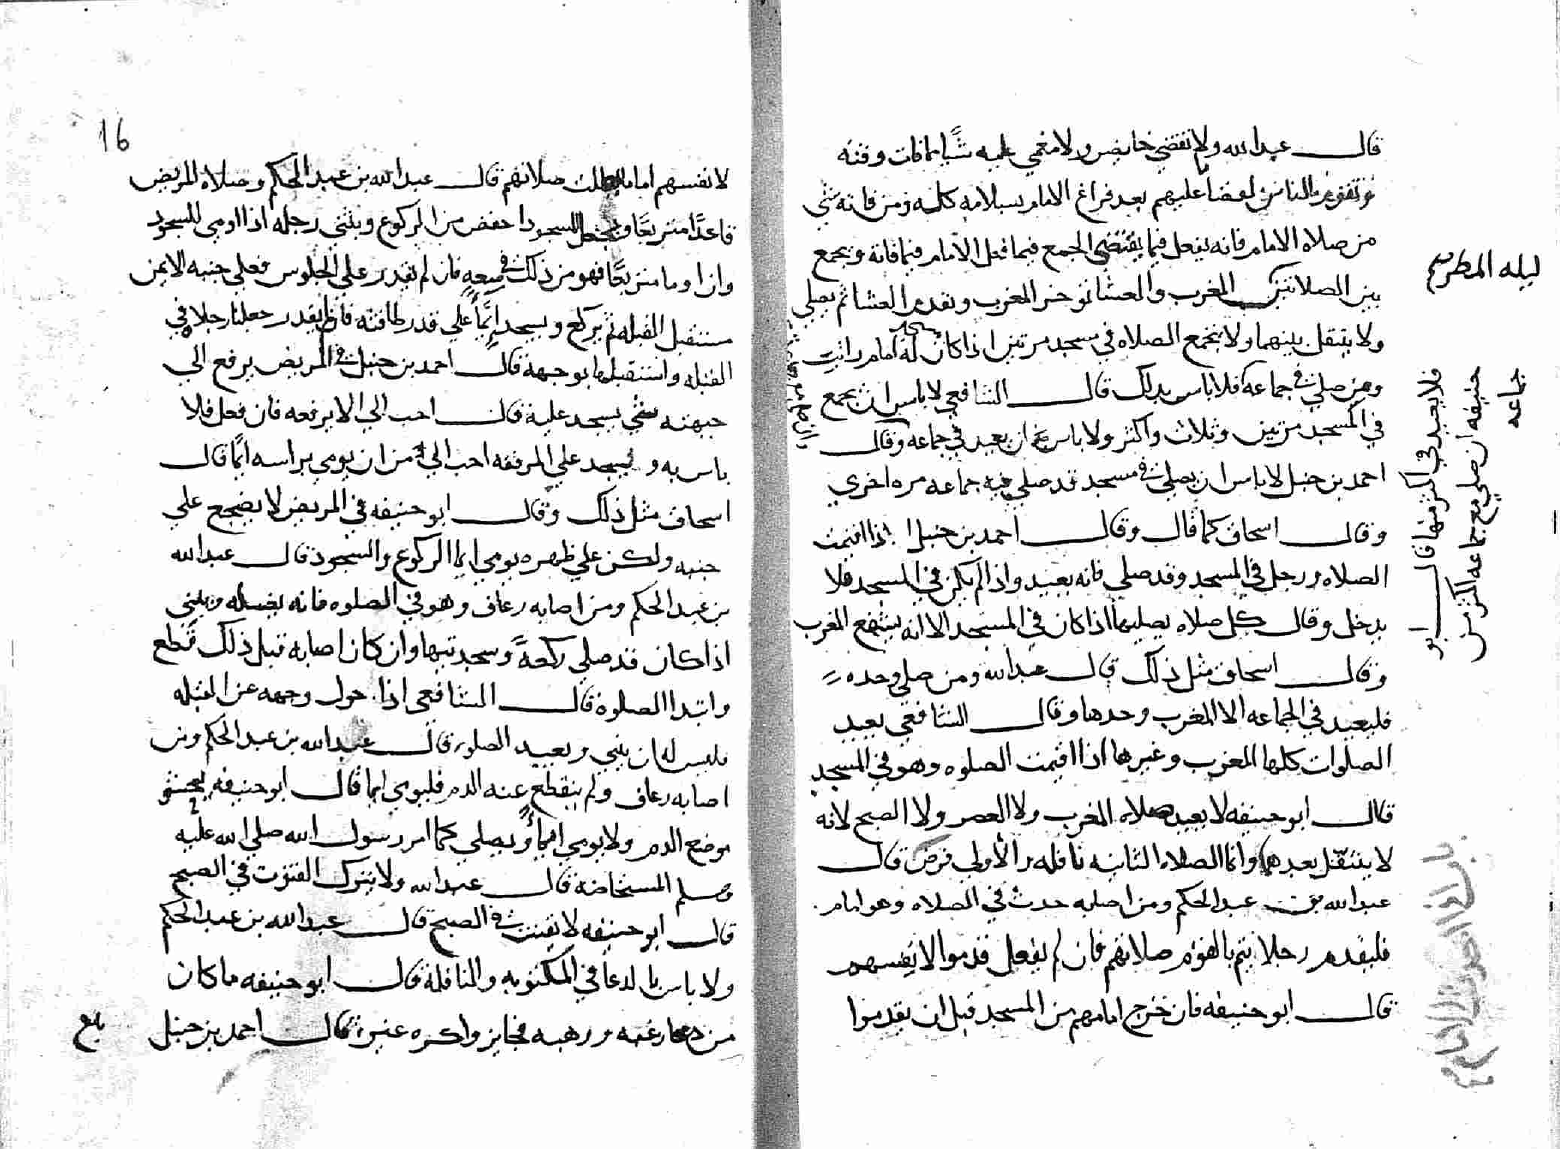 قال عبدالله ولا تقضي حايض ولا مغمي عليه شيا مما فات وقته
ويقوم الناس لقضا عليهم بعد فراغ الامام بسلامه كله ومن فاته شي
من صلاه الامام فانه يفعل فيما يقتضي الجمع فيما فعل الامام فيما فاته ويجمع
بين الصلاتين المغرب والعشا توخر المغرب وتقدم العشا ثم يصلي
ولا يتنفل بينهما ولا يجمع الصلاه في مسجد مرتين اذا كان له امام راتب
ومن صلي في جماعه فلا باس بذلك قال الشافعي لا باس ان يجمع
في المسجد مرتين وثلاث واكثر ولا باس ان يعيد في جماعه وقال
احمد بن حنبل لا باس ان يصلي في مسجد قد صلي فيه جماعه مره اخري
وقال اسحاق كما قال وقال احمد بن حنبل اذا اقيمت
الصلاه ورجل في المسجد وقد صلي فانه يعيد واذا لم يكن في المسجد فلا
يدخل وقال كل صلاه يصليها اذا كان في المسجد الا انه يشفع المغرب
وقال اسحاق مثل ذلك قال عبدالله ومن صلي وحده
فليعيد في الجماعه الا المغرب وحدها وقال الشافعي يعيد
الصلوات كلها المغرب وغيرها اذا اقيمت الصلوه وهو في المسجد
قال ابو حنيفه لا يعيد صلاه المغرب ولا العصر ولا الصبح لانه
لا يتنفل بعدهما وانما الصلاه الثانيه نافله والأولي فرض قال
عبدالله بن عبدالحكم ومن اصابه حدث في الصلاه وهو امام
فليقدم رجلا يتم بالقوم صلاتهم فان لم يفعل قدموا لانفسهم
قال ابو حنيفه فان خرج امامهم من المسجد قبل ان يقدموا
ليله المطر
فلا يعيد في اكثر منها قال ابو
حنيفه ان صلي مع جماعه اكثر من
جماعه
16
لانفسهم اماما بطلت صلاتهم قال عبدالله بن عبد الحكم وصلاه المريض
قاعدًا متربعًا ويجعل السجود اخفض من الركوع ويثني رجله اذا اومي للسجود
وان اوما متربعًا فهو من ذلك في سعه فان لم يقدر علي الجلوس فعلي جنبه الايمن
مستقبل القبله ثم يركع ويسجد إيمًا علي قدر طاقته فان لم يقدر جعلنا رجلاه في
القبله واستقبلها بوجهه قال احمد بن حنبل في المريض يرفع الي
جبهته شي يسجد عليه قال احب الي الا يرفعه فان فعل فلا
باس به ويسجد علي المرفقه احب الي من ان يومي براسه ايمًا قال
اسحاق مثل ذلك وقال ابو حنيفه في المريض لا يضجع علي
جنبه ولكن علي ظهره يومي ايما الركوع والسجود قال عبدالله
بن عبدالحكم ومن اصابه رعاف وهو في الصلوه فانه يغسله ويبني
اذا كان قد صلي ركعةً وسجدتيها وان كان اصابه قبل ذلك قطع
وابتدا الصلوة قال الشافعي اذا حول وجهه عن القبله
فليس له ان يبني ويعيد الصلوه قال عبدالله بن عبدالحكم ومن
اصابه رعاف ولم ينقطع عنه الدم فليومي ايما قال ابو حنيفه يحشو
موضع الدم ولا يومي ايماءً ويصلي كما امر رسول الله صلي الله عليه
وسلم المستحاضه قال عبدالله ولا يترك القنوت في الصبح
قال ابو حنيفه لا يقنت في الصبح قال عبدالله بن عبدالحكم
ولا باس بالدعا في المكتوبه والنافلة قال ابو حنيفه ما كان
من دعا رغبه ورهبه فجايز واكره غيره قال احمد بن حنبل